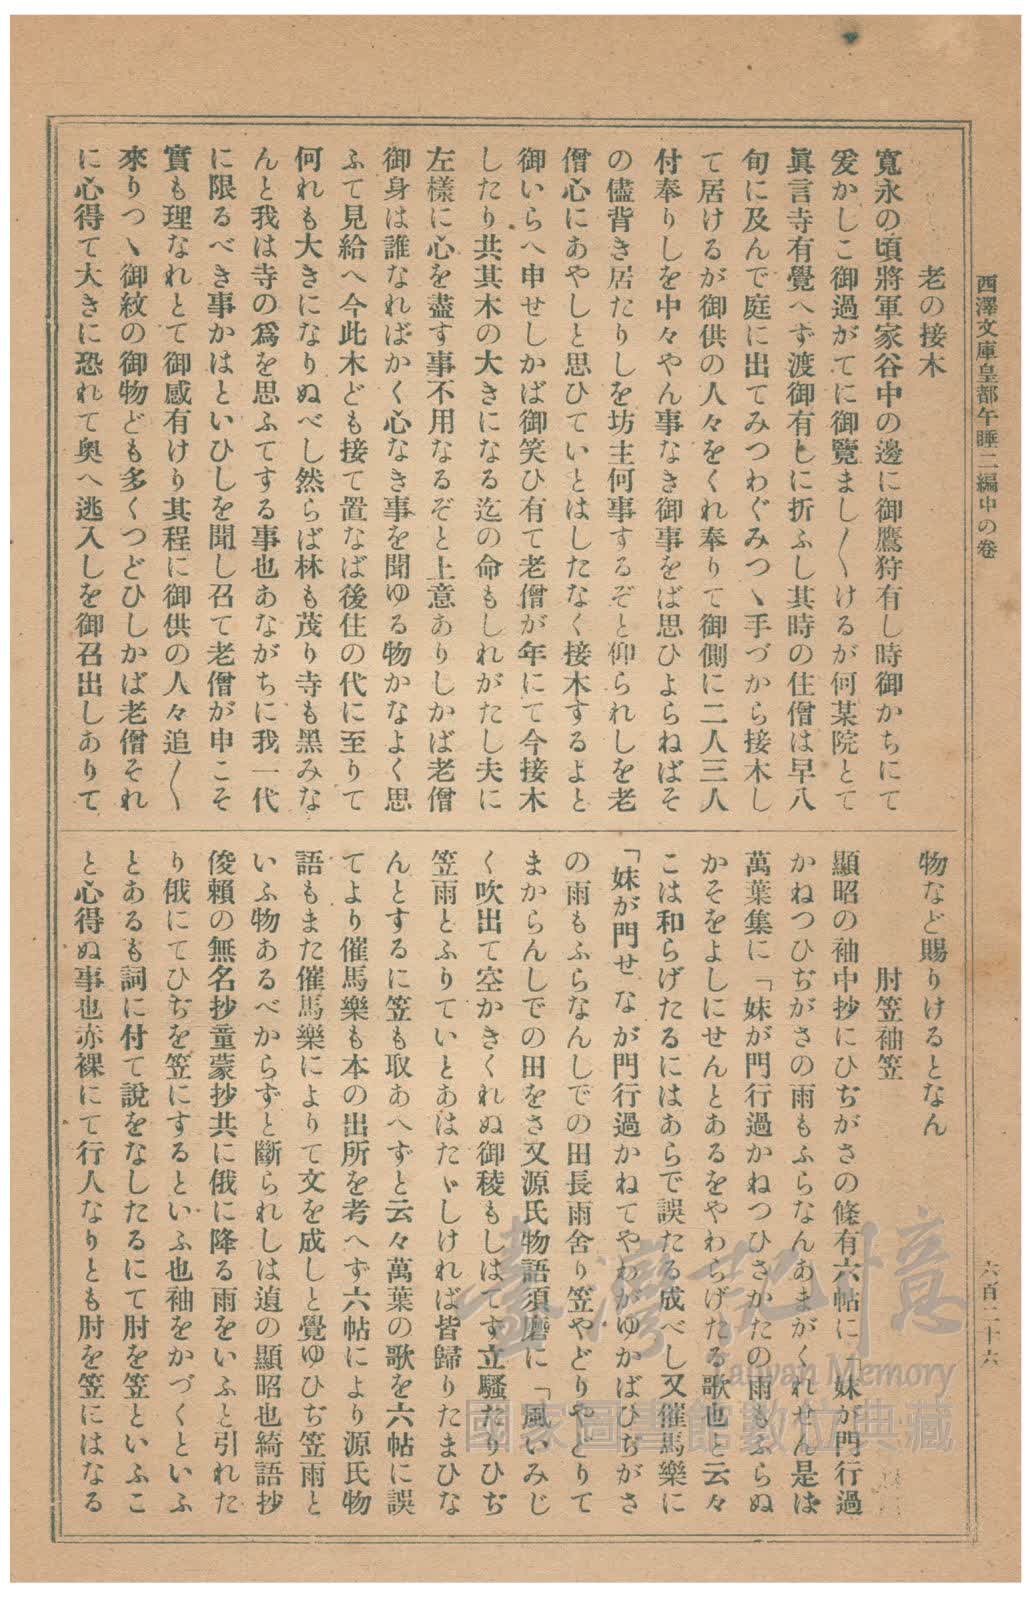 西澤文庫皇都午睡二編中の卷
六百二十六
老の接木
寬永の頃將軍家谷中の邊に御鷹狩有し時御かちにて
爰かしこ御過がてに御覽まし〳〵けるが何某院とて
眞言寺有覺へず渡御有しに折ふし其時の住僧は早八
旬に及んで庭に出てみつわぐみつヽ手づから接木し
て居けるが御供の人々をくれ奉りて御側に二人三人
付奉りしを中々やん事なき御事をば思ひよらねばそ
の儘背き居たりしを坊主何事するぞと仰られしを老
僧心にあやしと思ひていとはしたなく接木するよと
御いらへ申せしかば御笑ひ有て老僧が年にて今接木
したり共其木の大きになる迄の命もしれがたし夫に
左樣に心を盡す事不用なるぞと上意ありしかば老僧
御身は誰なればかく心なき事を聞ゆる物かなよく思
ふて見給へ今此木ども接て置なば後住の代に至りて
何れも大きになりぬべし然らば林も茂り寺も黑みな
んと我は寺の爲を思ふてする事也あながちに我一代
に限るべき事かはといひしを聞し召て老僧が申こそ
實も理なれとて御感有けり其程に御供の人々追〳〵
來りつヽ御紋の御物ども多くつどひしかば老僧それ
に心得て大きに恐れて奧へ逃入しを御召出しありて
物など賜りけるとなん
肘笠袖笠
顯昭の袖中抄にひぢがさの條有六帖に「妹が門行過
かねつひぢがさの雨もふらなんあまがくれせん是は
萬葉集に「妹が門行過かねつひさかたの雨もふらぬ
かそをよしにせんとあるをやわらげたる歌也と云々
こは和らげたるにはあらで誤たる成べし又催馬樂に
「妹が門せなが門行過かねてやわがゆかばひぢがさ
の雨もふらなんしでの田長雨舍り笠やどりやどりて
まからんしでの田をさ又源氏物語須磨に「風いみじ
く吹出て空かきくれぬ御稜もしはてす立騷たりひぢ
笠雨とふりていとあはたヾしければ皆歸りたまひな
んとするに笠も取あへずと云々萬葉の歌を六帖に誤
てより催馬樂も本の出所を考へず六帖により源氏物
語もまた催馬樂によりて文を成しと覺ゆひぢ笠雨と
いふ物あるべからずと斷られしは遉の顯昭也綺語抄
俊賴の無名抄童蒙抄共に俄に降る雨をいふと引れた
り俄にてひぢを笠にするといふ也袖をかづくといふ
とあるも詞に付て說をなしたるにて肘を笠といふこ
と心得ぬ事也赤裸にて行人なりとも肘を笠にはなる
臺灣記憶
Taiwan Memory
國家圖書館數位典藏